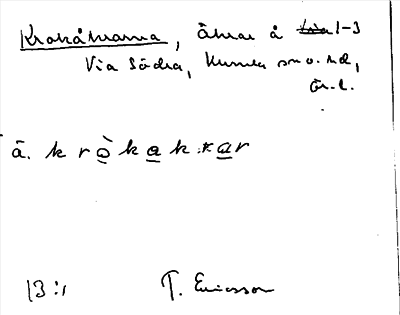 Krokåkrarna, åkrar å 1-3
Via Södra, Kumla sn o. hd,
Ör. l.
å. kròkakkar
13:1 T. Ericsson